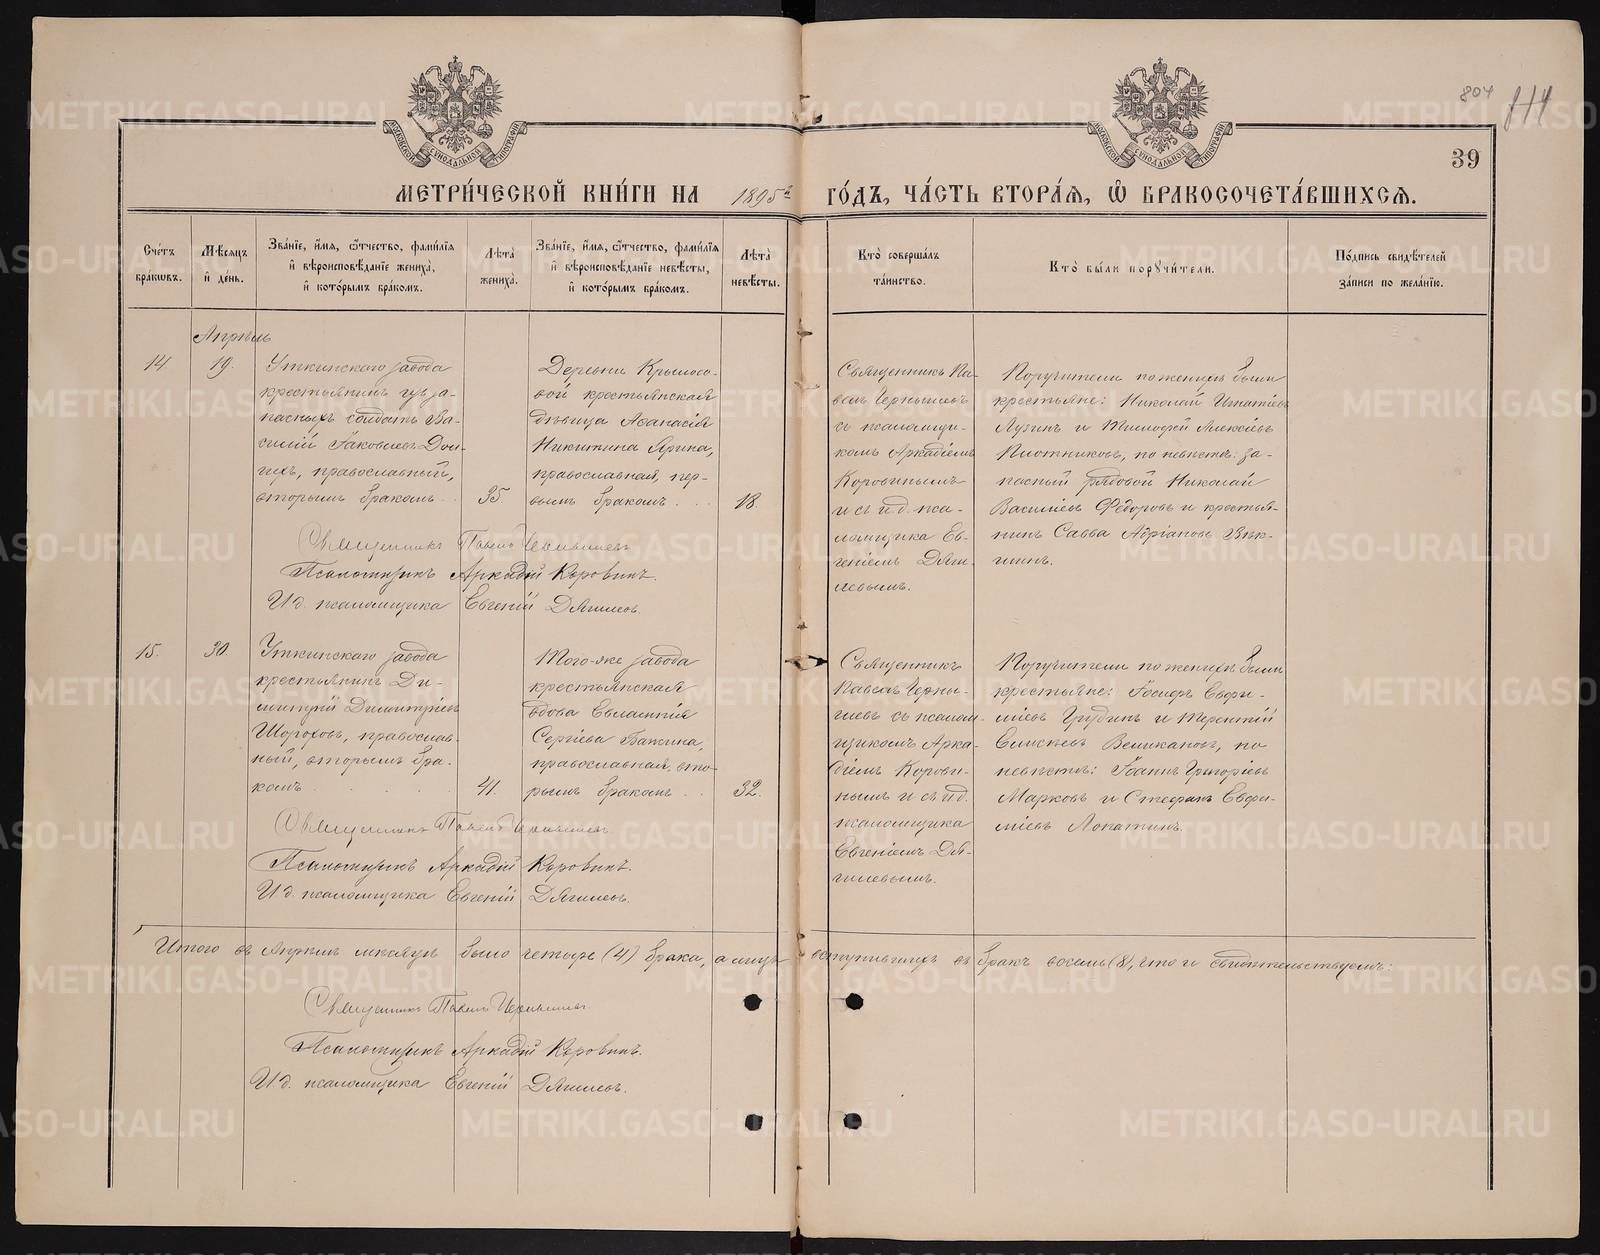 804
39
МЕТРИ́ЧЕСКОЙ КНИ́ГИ НА 1895 ГО́ДЪ, ЧА́СТЬ ВТОРА́Я, Ѽ БРАКОСОЧЕТА́ВШИХСЯ.
Сче́тъ бра́ковъ.
Мѣ́сяцъ и҆ де́нь.
Зва́нїе, и҆́мя, ѻ҆́тчество, фами́лїя и҆ вѣроисповѣ́данїе жениха̀, и҆ кото́рымъ бра́комъ.
Лѣта̀ жениха̀.
Зва́нїе, и҆́мя, ѻ҆́тчество, фами́лїя и҆ вѣроисповѣ́данїе невѣ́сты, и҆ кото́рымъ бра́комъ.
Лѣта̀ невѣ́сты.
Кто̀ соверша́лъ та́инство.
Кто̀ бы́ли порꙋчи́тели.
По́дпись свидѣ́телей за́писи по жела́нїю.
Апрѣль
14.
19.
Уткинскаго завода
крестьянинъ изъ за-
пасныхъ солдатъ Ва-
силій Іаковлевъ Дол-
гихъ, православный,
вторымъ бракомъ
35.
Деревни Крылосо-
вой крестьянская
дѣвица Аѳанасія
Никитина Ярина,
православная, пер-
вымъ бракомъ
18.
Священникъ Па-
велъ Чернышевъ
съ псаломщи-
комъ Аркадіемъ
Коровинымъ
и съ и.д. пса-
ломщика Ев-
геніемъ Дяги-
левымъ.
Поручители по женихѣ были
крестьяне: Николай Игнатіевъ
Лузинъ и Тимофей Алексѣевъ
Плотниковъ, по невѣстѣ: за-
пасный рядовой Николай
Василіевъ Ѳедоровъ и крестья-
нинъ Савва Адріановъ
Священникъ Павелъ Чернышевъ
Псаломщикъ Аркадій Коровинъ.
И.д. псаломщика Евгеній Дягилевъ.
15.
30.
Уткинскаго завода
крестьянинъ Ди-
митрій Димитріевъ
Шороховъ, православ-
ный, вторымъ бра-
комъ
41.
Того-же завода
крестьянская
вдова Евлампія
Сергіева Бажина,
православная, вто-
рымъ бракомъ
32.
Священникъ
Павелъ Черны-
шевъ съ псалом-
щикомъ Арка-
діемъ Корови-
нымъ и съ и.д.
псаломщика
Евгеніемъ Дя-
гилевымъ.
Поручители по женихѣ были
крестьяне: Іосифъ Евфи-
міевъ Грудинъ и Терентій
Елисѣевъ Великановъ, по
невѣстѣ: Іоаннъ Григоріевъ
Марковъ и Стефанъ Евфи-
міевъ Лопатинъ.
Священникъ Павелъ Чернышевъ
Псаломщикъ Аркадій Коровинъ.
И.д. псаломщика Евгеній Дягилевъ.
Итого въ Апрѣлѣ мѣсяцѣ было четыре (4) брака, а лицъ вступившихъ въ бракъ восемь (8), что и свидѣтельствуемъ:
Священникъ Павелъ Чернышевъ
Псаломщикъ Аркадій Коровинъ.
И.д. псаломщика Евгеній Дягилевъ.
METRIKI.GASO-URAL.RU